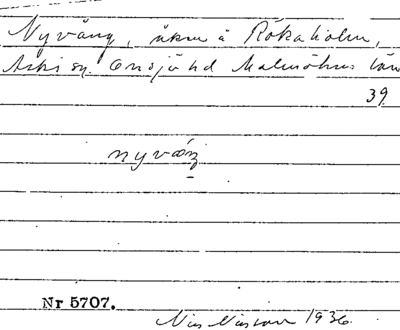 Nyväng, åker å Rökaholm,
Ask sn. Onsjö hd Malmöhus län
39
nyväŋ
Nr 5707.
Nils Nilsson 1936.